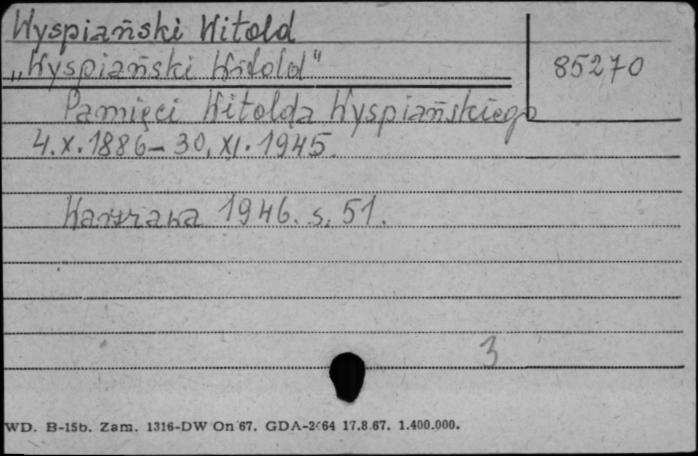 Wyspiański Witold
„Wyspiański Witold"
85270
Pamięci Witolda Wyspiańskiego
4.X.1886 – 30.XI.1945.
Warszawa 1946. s. 51.
3
WD. B-15b. Zam. 1316-DW On 67. GDA-2464 17.8.67. 1.400.000.